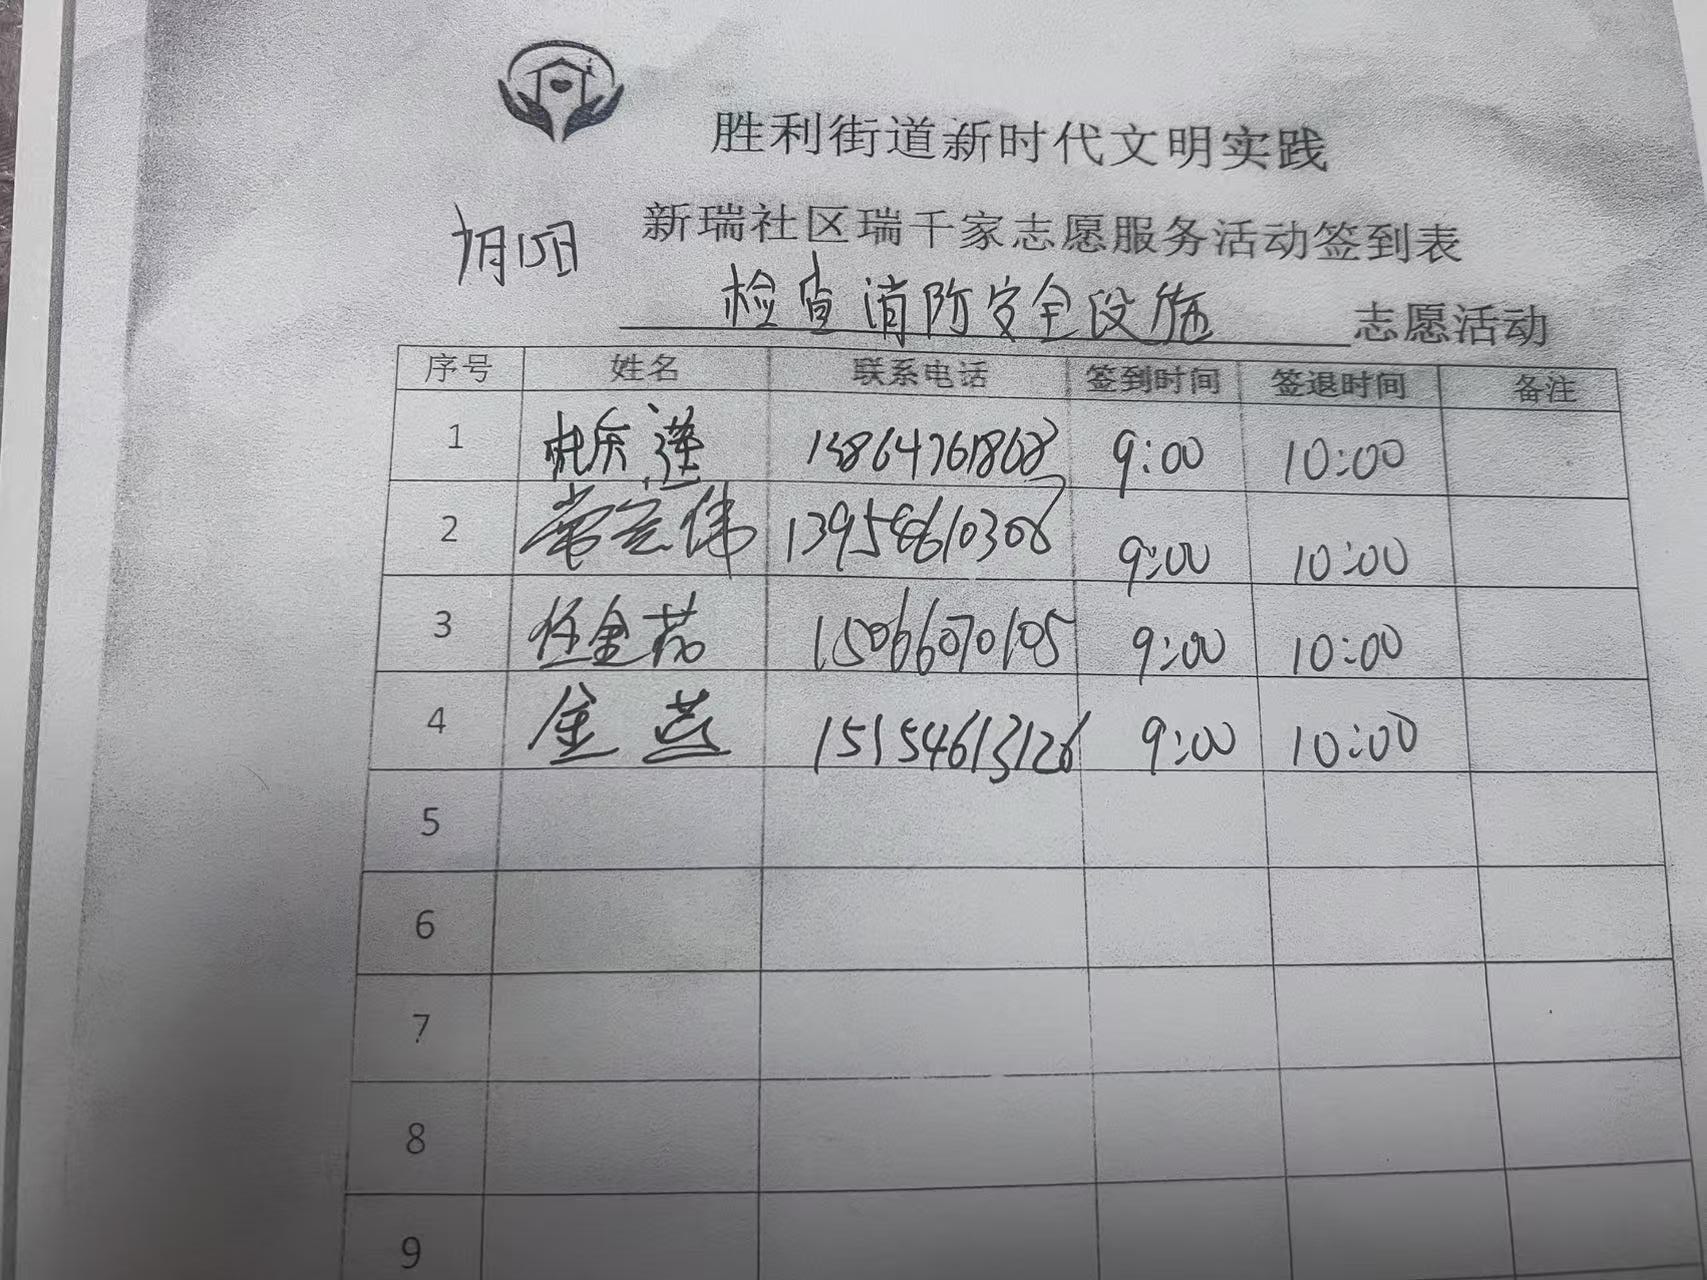 胜利街道新时代文明实践
新瑞社区瑞千家志愿服务活动签到表
7月15日
检查消防安全设施 志愿活动
序号 姓名 联系电话 签到时间 签退时间 备注
1 13864761868 9:00 10:00
2 常宏伟 13954610306 9:00 10:00
3 任金茹 15066070105 9:00 10:00
4 金燕 15154613126 9:00 10:00
5
6
7
8
9